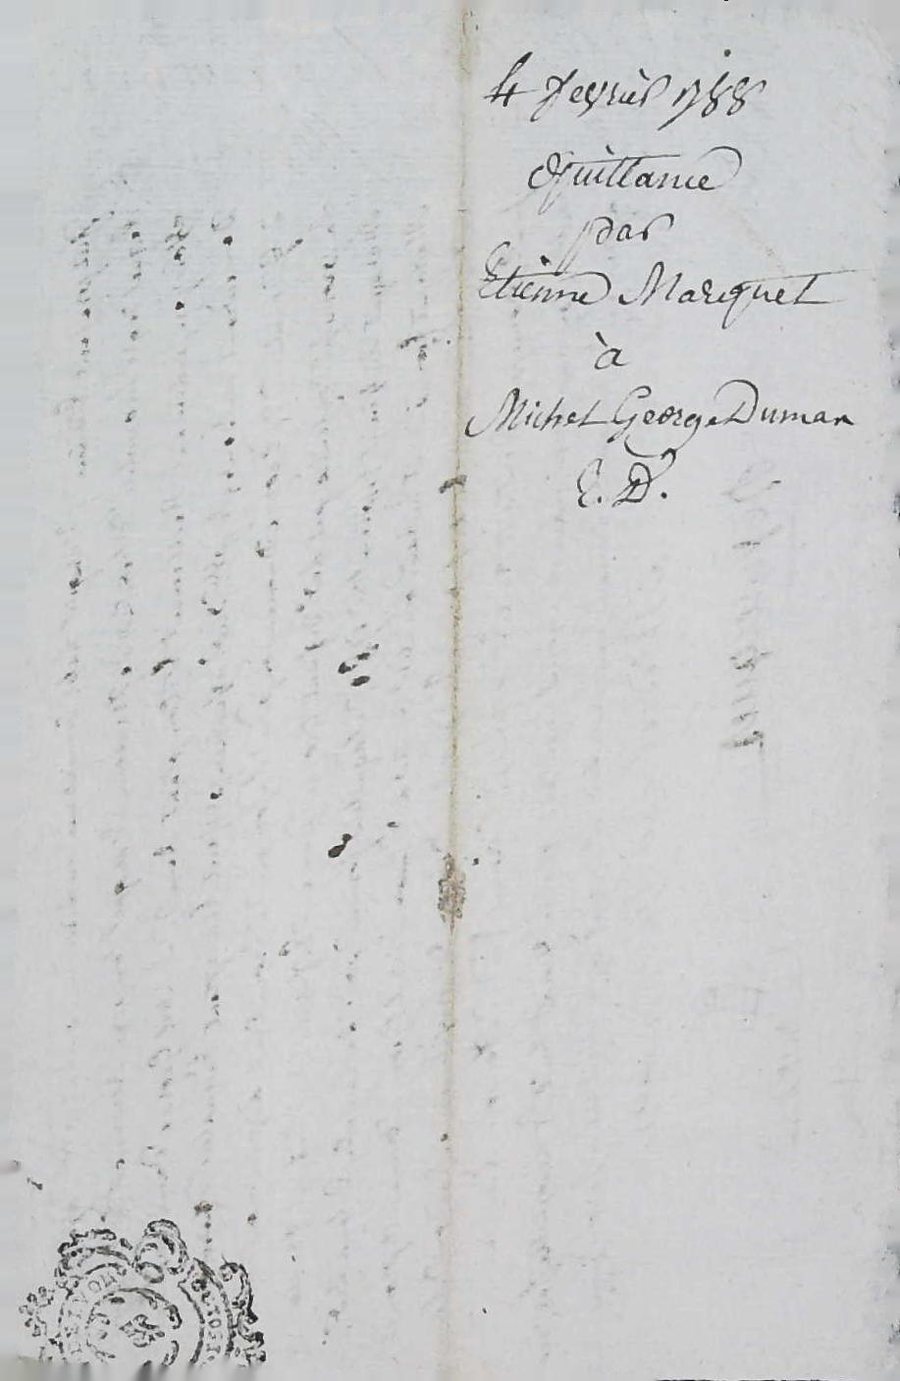 4 fevrier 1788
Quittance
par
Etienne Marquet
à
Michel George Duman
E. D.